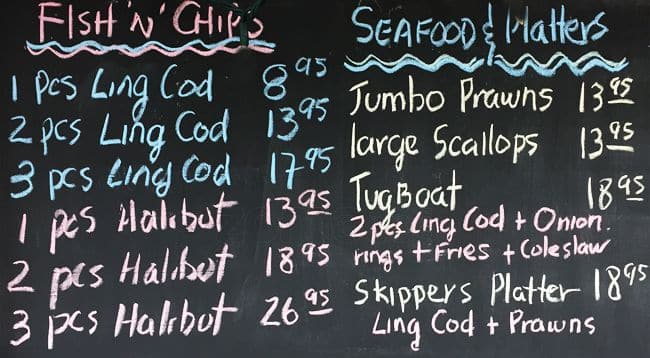 FISH 'N' CHIPS
1 pcs Ling Cod 8.95
2 pcs Ling Cod 13.95
3 pcs Ling Cod 17.95
1 pcs Halibut 13.95
2 pcs Halibut 18.95
3 pcs Halibut 26.95
SEAFOOD & Platters
Jumbo Prawns 13.95
large Scallops 13.95
TugBoat 18.95
2 pcs Ling Cod + Onion.
rings + Fries + Coleslaw
Skippers Platter 18.95
Ling Cod + Prawns